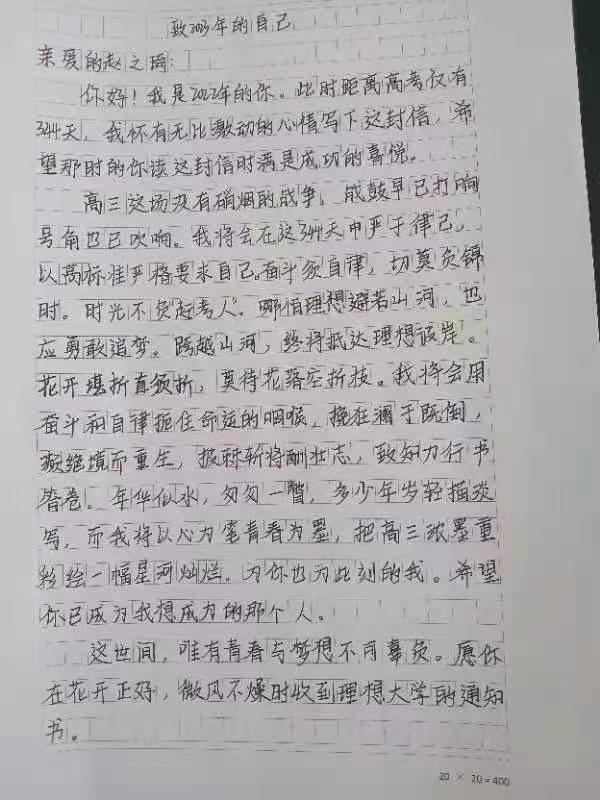 致2023年的自己
亲爱的赵之琦:
你好!我是2022年的你。此时距离高考仅有
344天,我怀有无比激动的心情写下这封信,希
望那时的你读这封信时满是成功的喜悦。
高三这场没有硝烟的战争,战鼓早已打响
号角也已吹响。我将会在这344天中严于律己,
以高标准严格要求自己。奋斗须自律,切莫负锦
时。时光不负赶考人。哪怕理想避若山河,也
应勇敢追梦。跨越山河,终将抵达理想彼岸。
花开堪折直须折,莫待花落空折枝。我将会用
奋斗和自律扼住命运的咽喉,挽狂澜于既倒,
频绝境而重生,披棘斩将酬壮志,致知力行书
答卷。年华似水,匆匆一瞥,多少年岁轻描淡
写,而我将以心为笔青春为墨,把高三浓墨重
彩绘一幅星河灿烂。为你也为此刻的我。希望
你已成为我想成为的那个人。
这世间,唯有青春与梦想不可辜负。愿你
在花开正好,微风不燥时收到理想大学的通知
书。
20 × 20 = 400